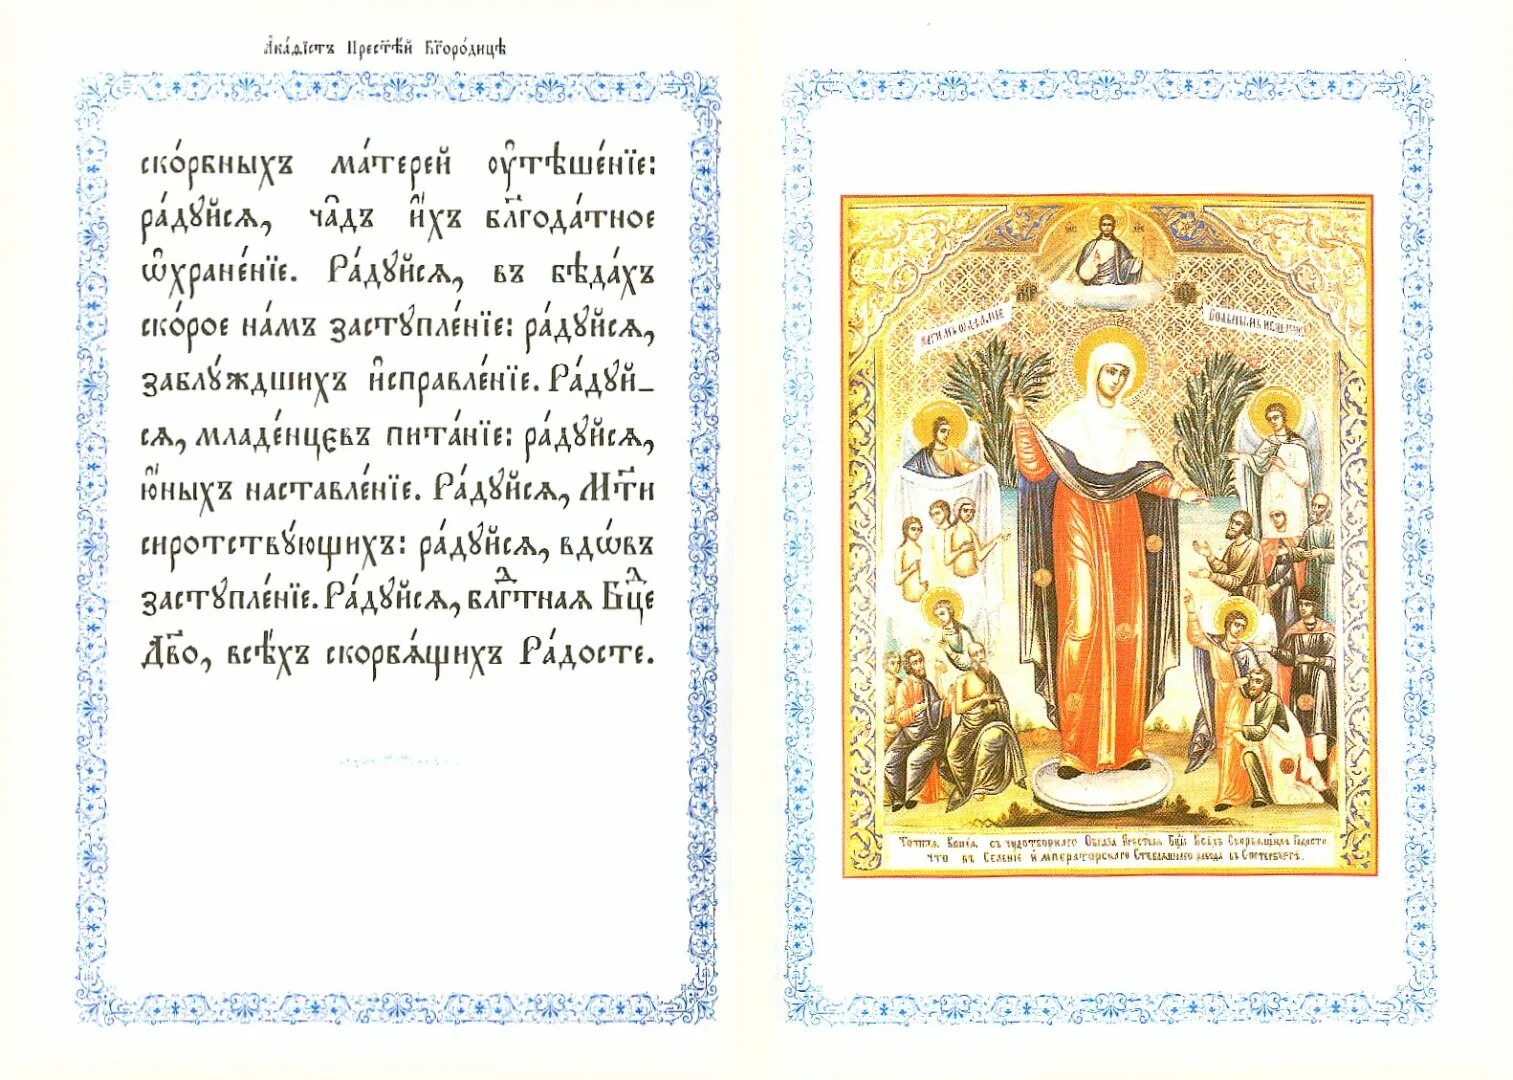 А҆ка́ѳїстъ Прест҃ѣ́й Бг҃оро́дицѣ
ско́рбныхъ ма́терей ᲂу҆тѣше́нїе:
ра́дуйсѧ, ча̑дъ и҆́хъ блг҃ода́тное
ѡ҆хране́нїе. Ра́дуйсѧ, въ бѣда́хъ
ско́рое на́мъ застꙋпле́нїе: ра́дуйсѧ,
заблꙋ́ждшихъ и҆справле́нїе. Ра́дуй_
сѧ, младе́нцєвъ пита́нїе: ра́дуйсѧ,
ю҆́ныхъ наставле́нїе. Ра́дуйсѧ, Мт҃и
сиротствꙋ́ющихъ: ра́дуйсѧ, вдо́въ
застꙋпле́нїе. Ра́дуйсѧ, блгⷣтная Бцⷣе
Дв҃о, всѣ́хъ скорбѧ́щихъ Ра́досте.
нагимъ одѣѧнїе
больнымъ исцѣленїе
Точная Копїя съ чудотворнаго Образа Престыя Бцы Всѣхъ Скорбящихъ Радосте
что въ Селенїе Императорскаго Стекляннаго завода въ С.петербургѣ.